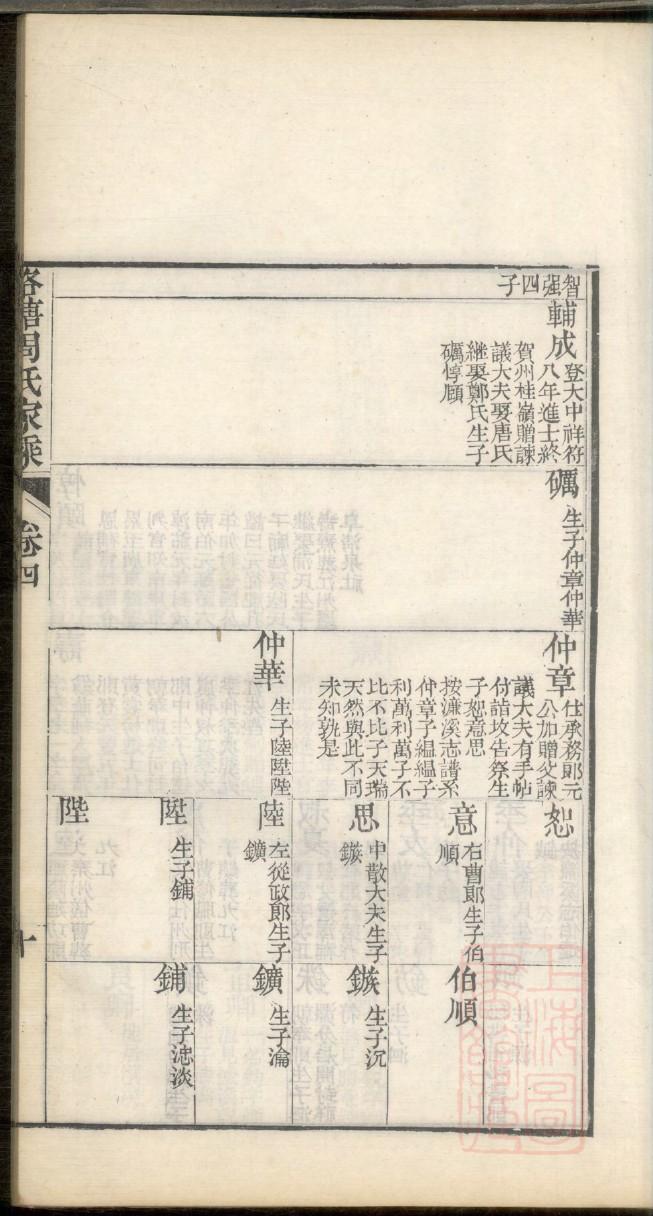 智强四子
輔成
登大中祥符
八年進士終
賀州桂嶺贈諫
議大夫娶唐氏
継娶鄭氏生子
礪惇頤
礪
生子仲章仲華
仲章
仕承務郎元
公加贈父諫
議大夫有手帖
付喆坟告祭生
子恕意思
按濂溪志譜系
仲章子緼緼子
利萬利萬子不
比不比子天瑞
天然與此不同
未知孰是
仲華
生子陸陞陛
恕
意
右曹郎生子伯
順
思
中散大夫生子
鏃
陸
左從政郎生子
鑛
陞
生子鋪
陛
伯順
鏃
生子沉
鑛
生子瀹
鋪
生子淴淡
周氏家乘
卷四
十